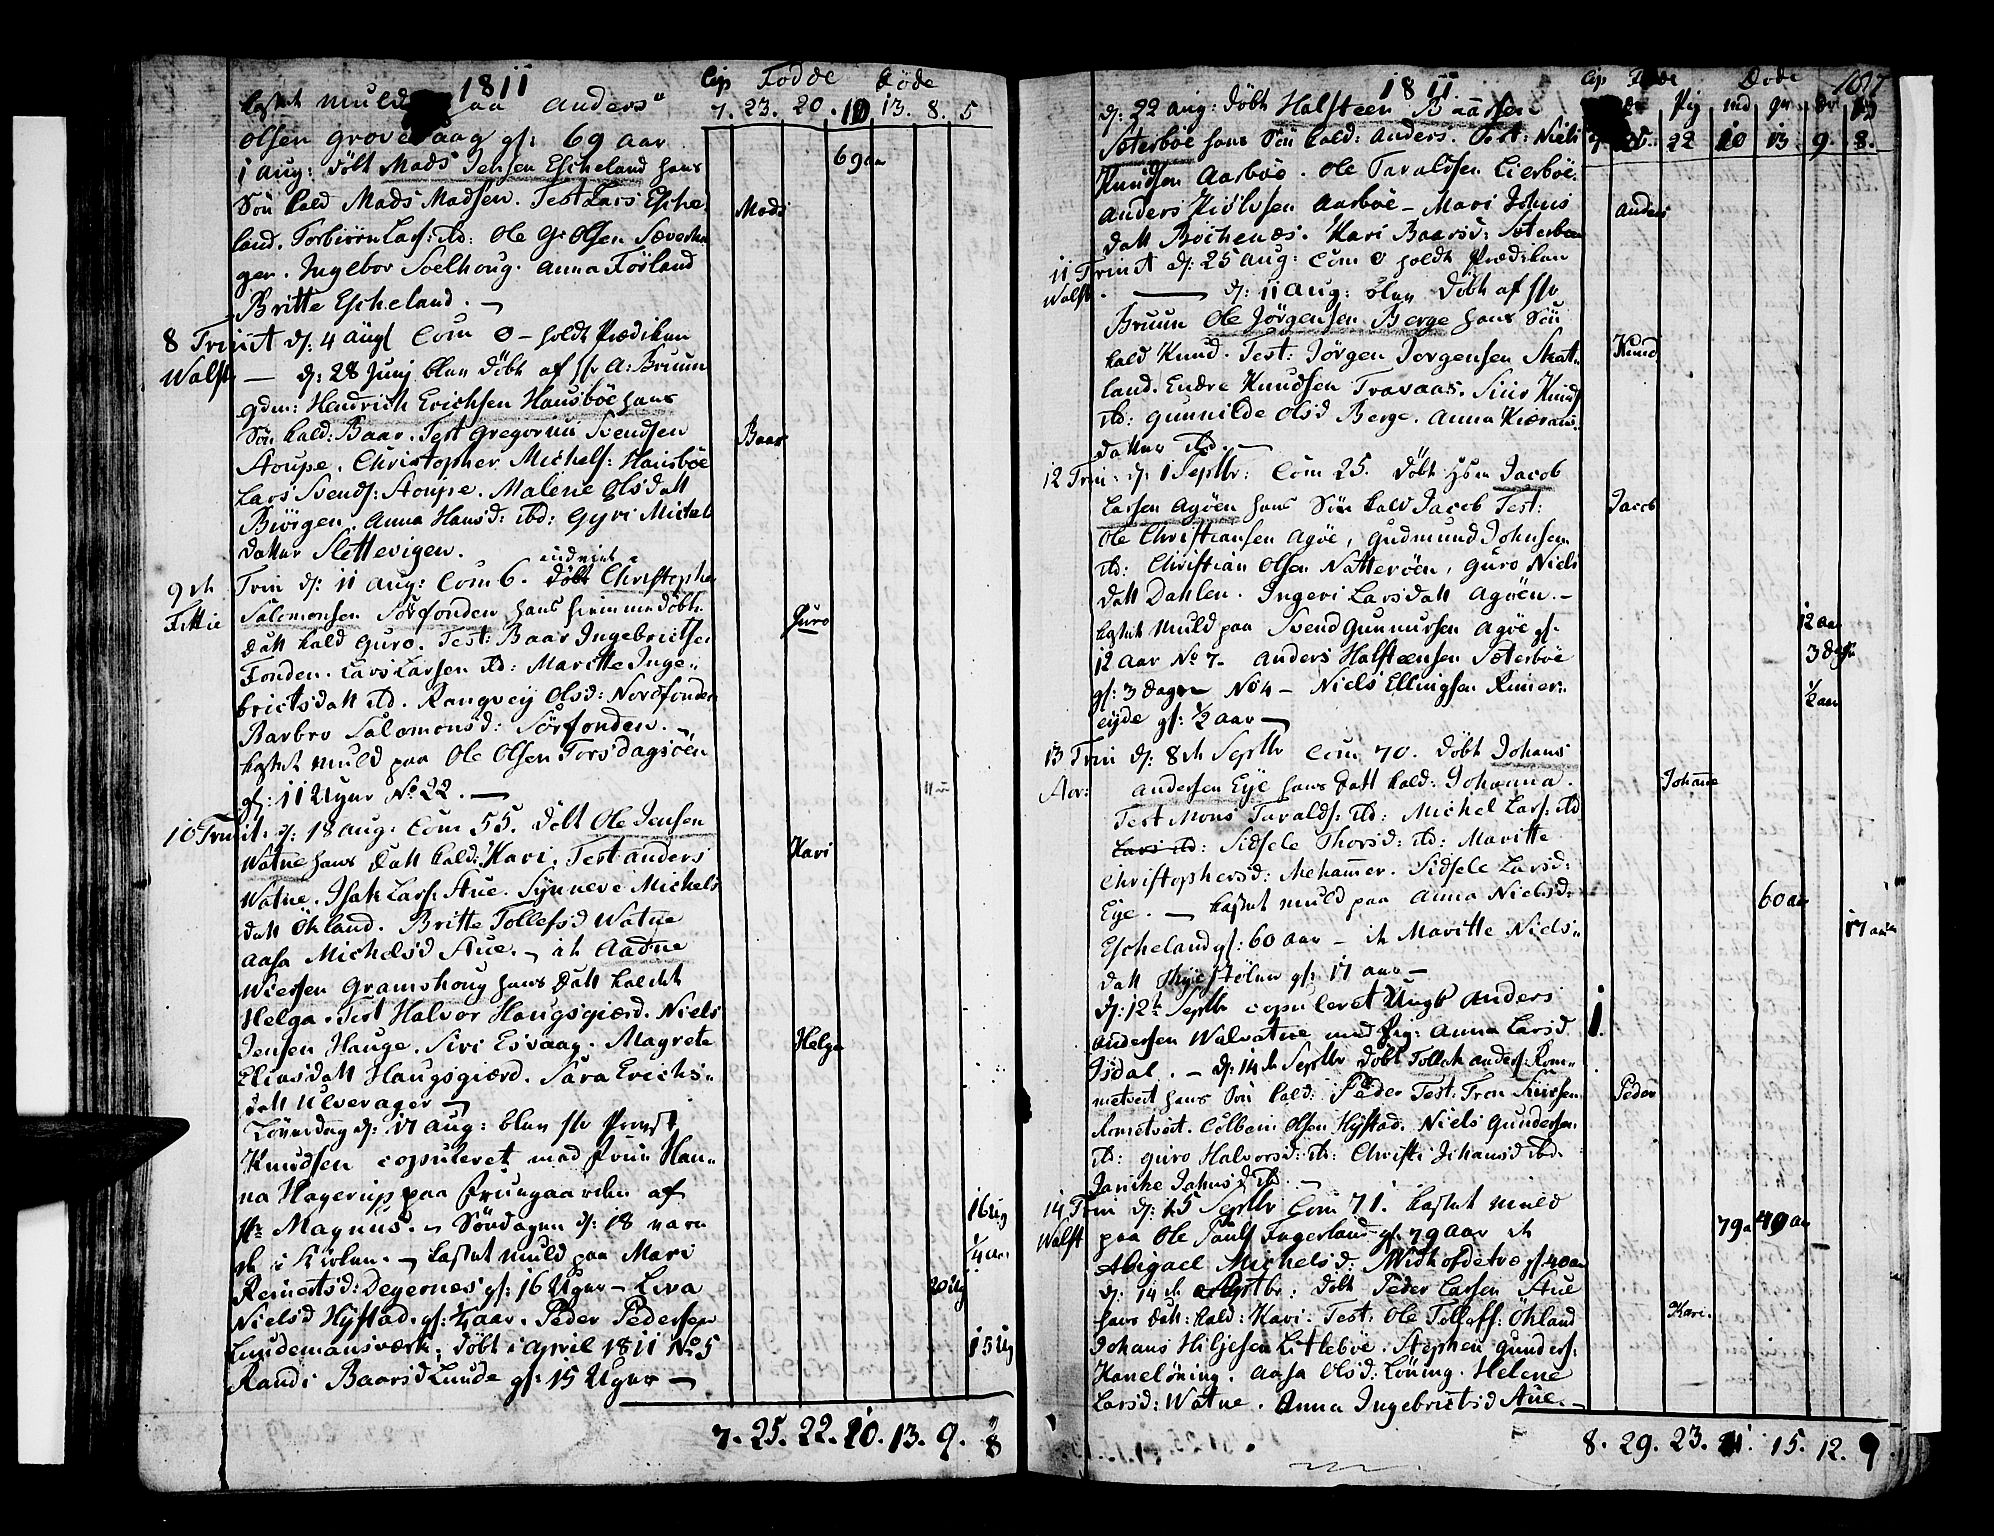 1811
Cop Fødde Døde
7. 23. 20. 10 13. 8. 5
kastet muld paa Anders
Olsen Grovevaag gl: 69 aar
69 aar
1 Aug: døbt Mads Jensen Escheland hans
Søn kald Mads Madsen. Test Lars Esche-
Mads
land. Torbiørn Lars: ibd: Ole Olsen
gen. Ingebor Soelhoug. Anna Førland
Britte Escheland.
8 Trinit d: 4 Aug Com 0 – holdt Prædiken
Walst — d: 28 Junj blev døbt af Hr A: Bruun
gdm: Hendrich Erichsen Hausböe hans
Søn kald: Baar. Test Gregorius Svendsen
Baar
Stoupe. Christopher Michels: Hausböe
Lars Svends: Stoupe. Malene Olsdatt
Biörgen. Anna Hansd: ibd: Gyri Michels
datter Slettevigen.
9de Trin d: 11 Aug: Com 6. døbt Christopher
Fittie Salomonsen Sörfonden hans hiemmedøbte
Datt kald Guro. Test: Baar Ingebrictsen
Guro
Fonden. Lars Larsen ibd: Maritte Inge-
brictsdatt ibd. Rangvey Olsd: Nordfonden
Barbro Salomonsd: Sörfonden.
kastet muld paa Ole Olsen Torsdagsöen
gl: 11 Uger No 22. —
10 Trinit. d: 18 Aug. Com 55. Døbt Ole Jensen
Watne hans Datt kald: Kari. Test Anders
Kari
Watne. Isak Lars: Aue. Synneve Michels
datt Økland. Britte Tollefsd Watne
Aasa Michelsd Aue. – it Aadne
Wiersen Gramshoug hans Datt kaldet
Helga. Test Halvor Haugsgierd. Niels
Jensen Hauge. Siri Esvaag. Magrete
Helga
Eliasdatt Haugsgierd. Sara Erichs-
datt Ulverager —
Löverdag d: 17 Aug: blev Hr Provst
Knudsen copuleret med Frue Han-
na Hagerup paa Fruegaarden af
Hr Magnus. – Söndagen d: 18 vare
de i Kirken. – kastet muld paa Mari
16 Ug
¼ aar
Reinertsd: Degernes gl: 16 Uger – Liva
20 Ug
Nielsd Hystad. gl: ¼ aar. Peder Pedersen
Lundemansverk. døbt i April 1811 No 5
15 Ug
Randi Baarsd Lunde gl: 15 Uger —
7. 25. 22. 10. 13. 9. 8
1811
Cop Fødde Døde 107
Pig md qv.
7 25. 22 10 13 9. 8.
d: 22 Aug: døbt Halsteen Baarsen
Sæterböe hans Søn kald: Anders. Test: Niels
Knudsen Aarböe. Ole Taraldsen Lierböe
Anders Aarböe – Mari Johns
Anders
datt Bochenæs. Kari Baarsd: Sæterböe
11 Trinit d: 25 Aug: Com 0 holdt Prædiken
Walst. — d: 11 Aug: blev døbt af Hr
Bruun Ole Jörgensen Berge hans Søn
kald Knud. Test: Jörgen Jorgensen Skat-
Knud
land. Endre Knudsen Travaas. Siur Knuds
ibd: Gunnilde Olsd Berge. Anna
datter ibd. —
12 Trin. d: 1 Septbr: Com 25. døbt Jacob
Larsen Agöen hans Søn kald Jacob Test:
Jacob
Ole Christiansen Agöe, Gudmund Johnsen
ibd: Christian Olsen Natteröen, Guro Niels
datt Dahlen. Ingeri Larsdatt Agöen. –
kastet muld paa Svend Gunnarsen Agöe gl.
12 aar
12 Aar No 7. Anders Halsteensen Sæterböe
3 dage
gl: 3 Dage No 4 – Niels Ellingsen Reimer-
½ aar
eyde gl: ½ aar —
13 Trin d: 8de Septbr Com 70. døbt Johans
Aar: Andersen Eye hans Datt kald: Johanna.
Johanne
Test Mons Taralds: ibd: Michel Lars: ibd
Lars ibd: Sidsele Thorsd: ibd: Maritte
Christophersd: Mehammer. Sidsele Larsd:
Eye. — kastet muld paa Anna Nielsd:
60 aar
Escheland gl: 60 aar – it Maritte Niels-
17 aar
datt gl: 17 aar –
d: 12te Septbr copuleret Ungk Anders
1.
Andersen Walvatne med Pig: Anna Larsd
Isdal. – d: 14de Septbr døbt Tollak Anders: Rom-
metveit hans Søn kald: Peder Test: Tron Siursen
Peder
Rometveit. Colbein Olsen Hystad. Niels Gundersen
ibd: Guro Halvorsd: ib: Christi Johansd ibd.
Janike Jahnsd ibd —
14 Trin d: 15 Septbr Com 71. kastet muld
Walst paa Ole Pauls: Fugerland gl: 79 aar it
79 a 40 aar
Abigael Michelsd: gl 40 aar
d: 14de Septbr: døbt Peder Larsen Aue
hans Datt: kald: Kari: Test: Ole Tolleff: Økland
Kari.
Johans Hiljesen Litleböe. Stephen Gunders:
Haneløning. Aasa Olsd: Löning. Helene
Larsd: Watne. Anna Ingebrictsd Aue. –
8. 29. 23. 11. 15. 12. 9